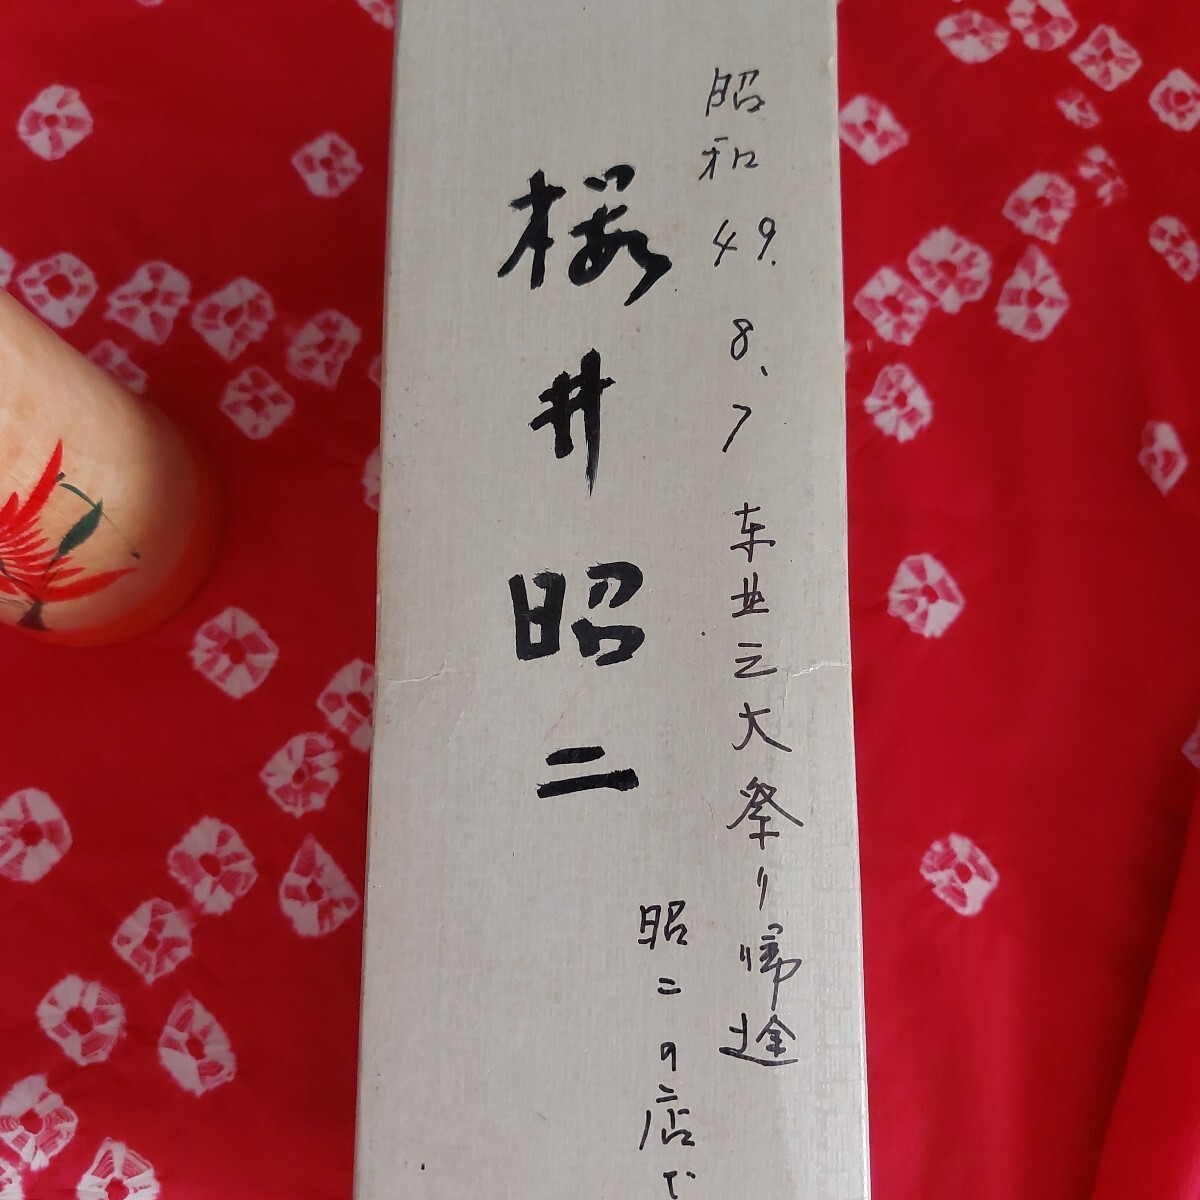 昭和49.8、7 东北三大祭り帰途
昭二の店で
桜井昭二